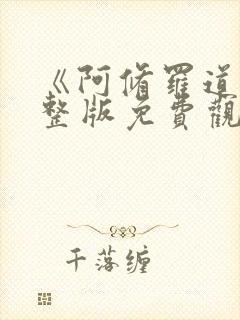 《阿脩羅道
整版免費觀
千落缠